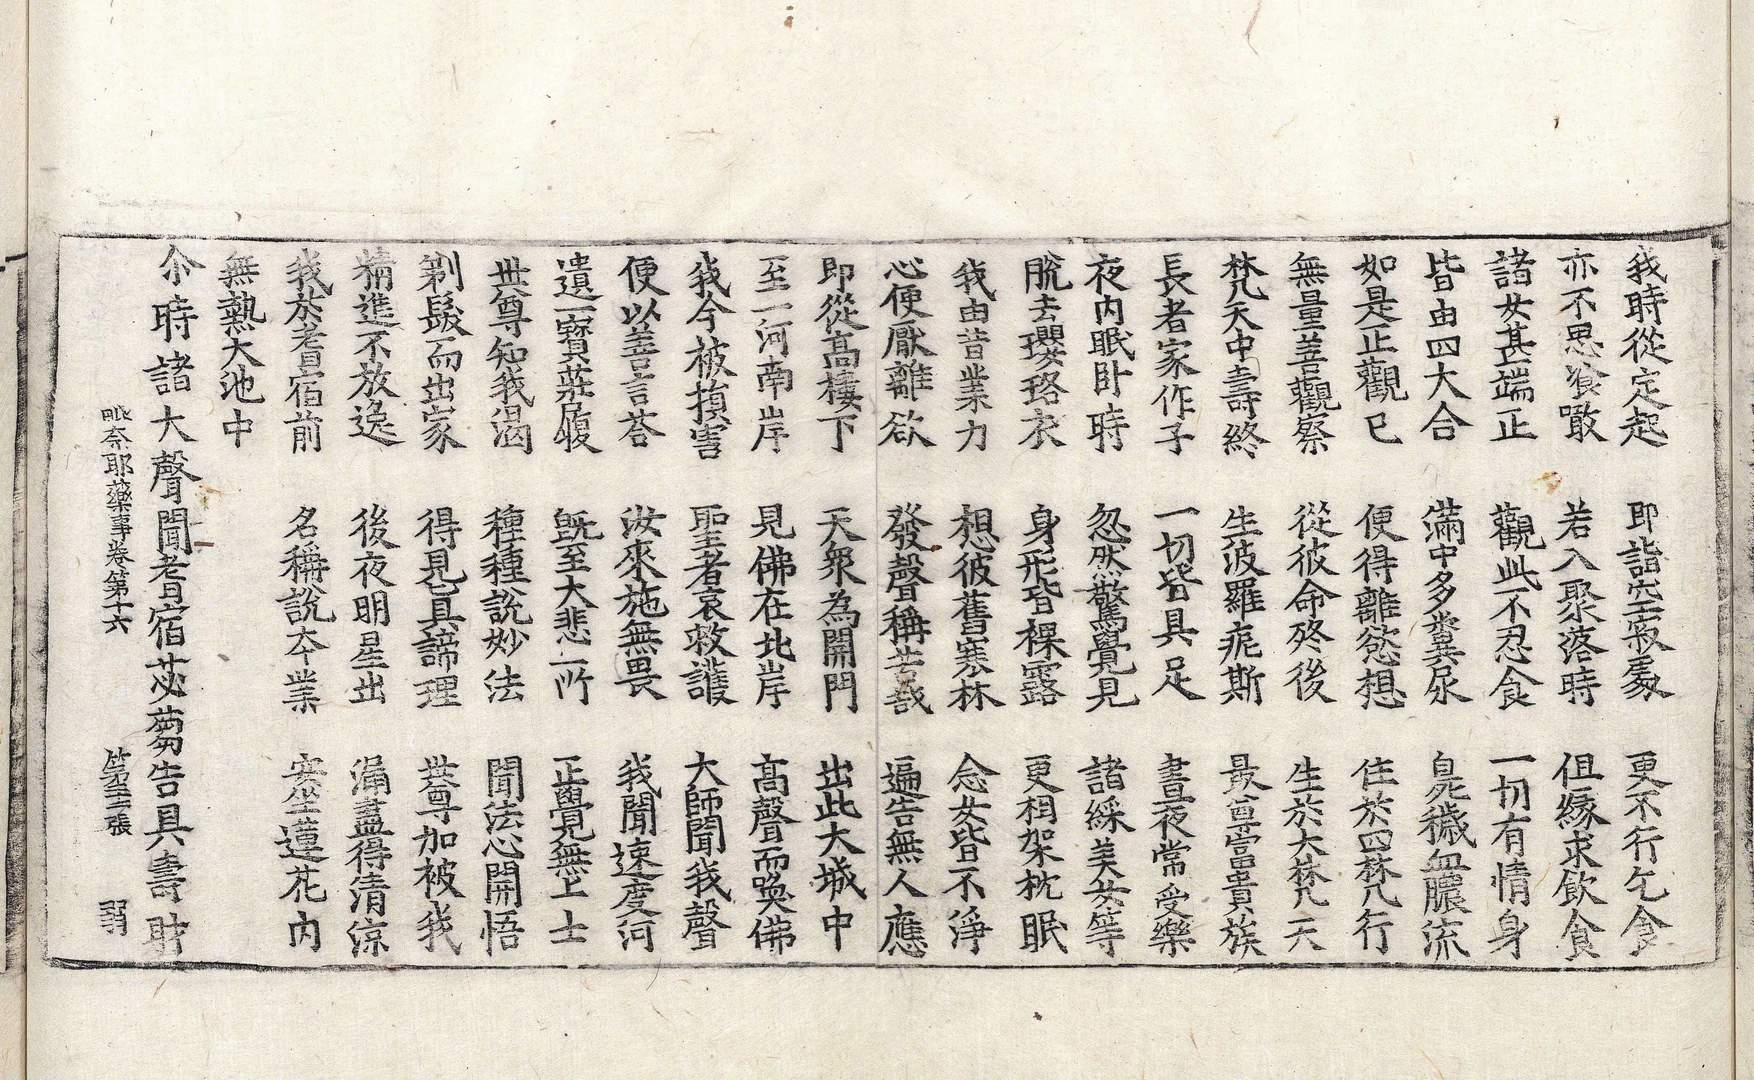 我時從定起 即詣空寂處 更不行乞食
亦不思飡噉 若入聚落時 但緣求飲食
諸女甚端正 觀此不忍食 一切有情身
皆由四大合 滿中多糞尿 臭穢血膿流
如是正觀已 便得離慾想 住於四梵行
無量善觀察 從彼命終後 生於大梵天
梵天中壽終 生波羅痆斯 最尊富貴族
長者家作子 一切皆具足 晝夜常受樂
夜內眠卧時 忽然驚覺見 諸綵美女等
脫去瓔珞衣 身形皆裸露 更相架枕眠
我由昔業力 想彼舊寒林 念女皆不淨
心便厭離欲 發聲稱苦哉 遍告無人應
即從高樓下 天衆為開門 出此大城中
至一河南岸 見佛在北岸 高聲而喚佛
我今被損害 聖者哀救護 大師聞我聲
便以善言荅 汝來施無畏 我聞速度河
遺一寶莊履 旣至大悲所 正覺無上士
世尊知我渴 種種說妙法 聞法心開悟
剃髮而出家 得見具諦理 世尊加被我
精進不放逸 後夜明星出 漏盡得清涼
我於耆宿前 名稱說本業 安坐蓮花內
無熱大池中
尒時諸大聲聞耆宿苾蒭告具壽財
毗奈耶藥事卷第十六 第三張